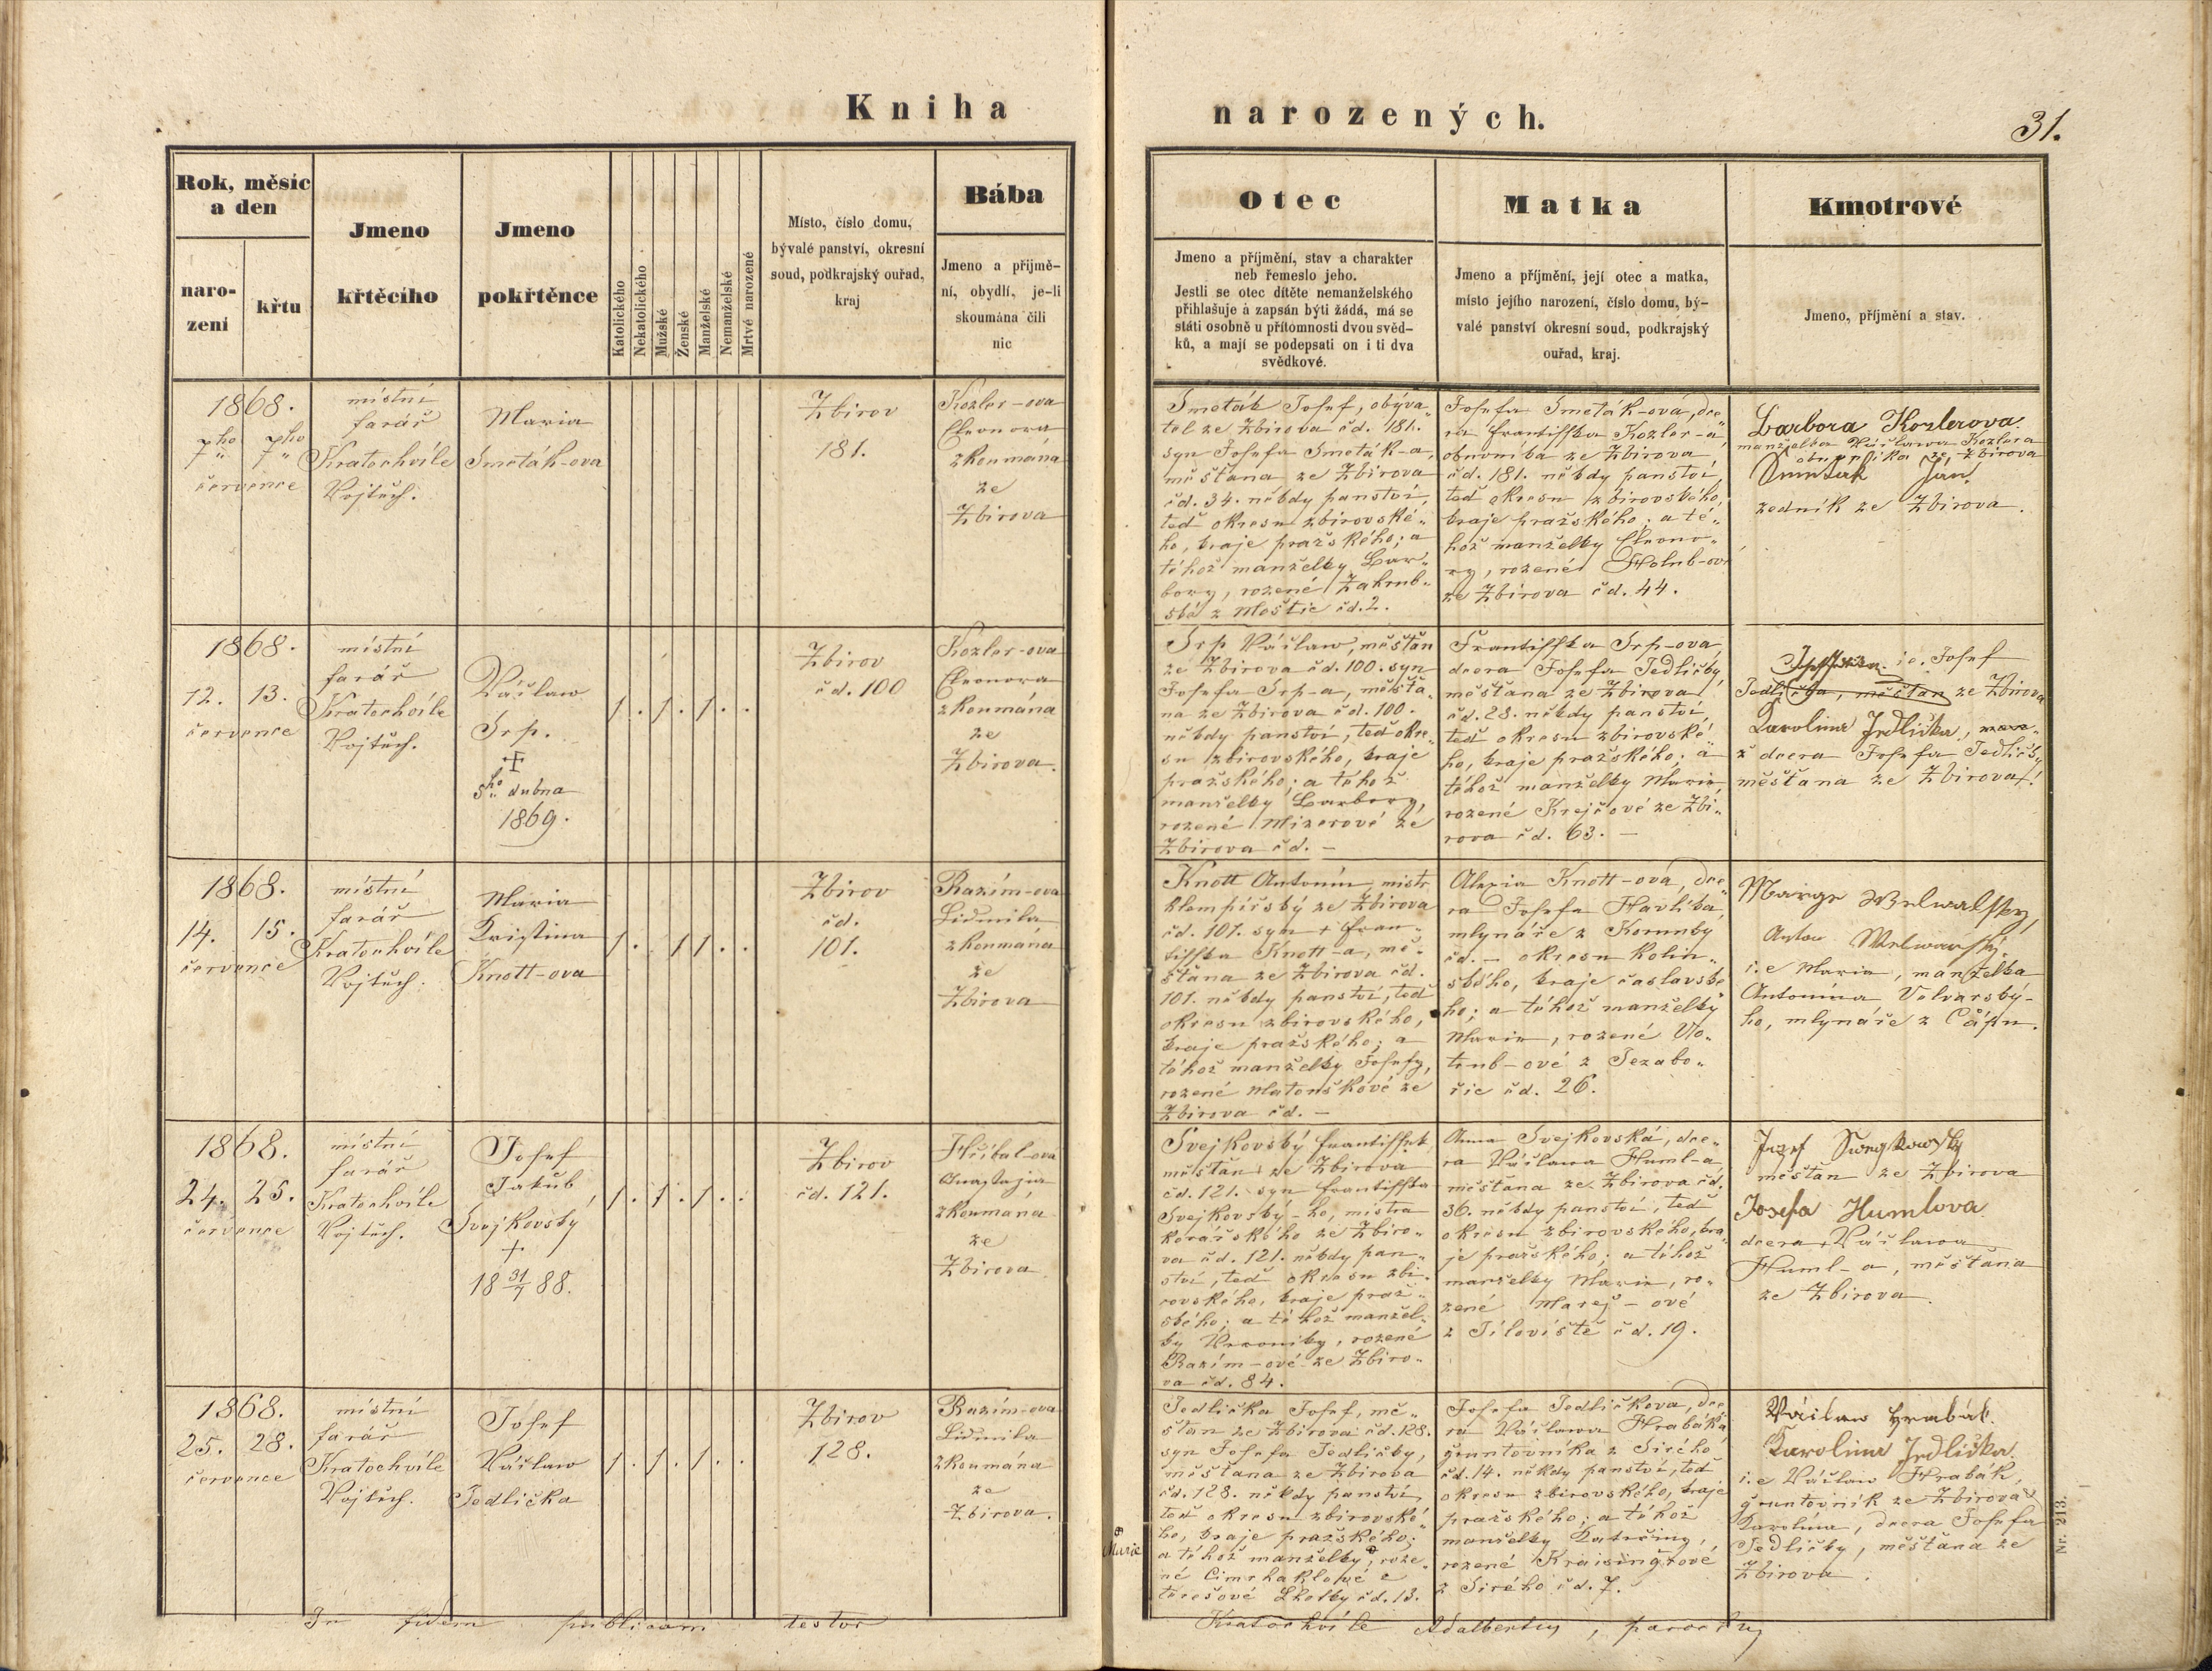 Kniha narozených.
31.
Rok, měsíc
a den
naro-
zení
křtu
Jmeno
křtěcího
Jmeno
pokřtěnce
Katolického
Nekatolického
Mužské
Ženské
Manželské
Nemanželské
Mrtvé narozené
Místo, číslo domu,
bývalé panství, okresní
soud, podkrajský ouřad,
kraj
Bába
Jmeno a přijmě-
ní, obydlí, je-li
skoumána čili
nic
Otec
Jmeno a příjmění, stav a charakter
neb řemeslo jeho.
Jestli se otec dítěte nemanželského
přihlašuje a zapsán býti žádá, má se
státi osobně u přítomnosti dvou svěd-
ků, a mají se podepsati on i ti dva
svědkové.
Matka
Jmeno a příjmění, její otec a matka,
místo jejího narození, číslo domu, bý-
valé panství okresní soud, podkrajský
ouřad, kraj.
Kmotrové
Jmeno, příjmění a stav.
1868.
7ho 7ho
července
místní
farář
Kratochvíle
Vojtěch.
Maria
Smeták-ova
Zbirov
181.
Kozler-ova
Eleonora
zkoumána
ze
Zbirova
Smeták Josef, obýva„
tel ze Zbirova čd. 181.
syn Josefa Smeták-a,
měšťana ze Zbirova
čd. 34. někdy panství,
teď okresu zbirovské„
ho, kraje pražského; a
téhož manželky Bar„
bory, rozené Zahrub„
ská z Moštic čd. 2.
Josefa Smeták-ová, dce„
ra Františka Kozler-a,
obuvníka ze Zbirova
čd. 181. někdy panství,
teď okresu zbirovského,
kraje pražského; a té„
hož manželky Eleono„
ry, rozené Holub-ové
ze Zbirova čd. 44.
Barbora Kozlerova.
manželka Václawa Kozlera
obuvníka ze Zbirova
Jan
zedník ze Zbirova.
1868.
12. 13.
července
místní
farář
Kratochvíle
Vojtěch.
Václaw
Srp.
†
5ho dubna
1869.
1 . 1 . 1 . .
Zbirov
čd. 100
Kozler-ova
Eleonora
zkoumána
ze
Zbirova.
Srp Václaw, měšťan
ze Zbirova čd. 100. syn
Josefa Srp-a, měšťa„
na ze Zbirova čd. 100.
někdy panství, teď okre„
su zbirovského, kraje
pražského; a téhož
manželky Barbory,
rozené Mizerové ze
Zbirova čd. –
Františka Srp-ova,
dcera Josefa Jedličky,
měšťana ze Zbirova
čd. 28. někdy panství,
teď okresu zbirovské„
ho, kraje pražského; a
téhož manželky Marie,
rozené Krejčové ze Zbi„
rova čd. 63. –
i.e. Josef
Jedlička, měšťan ze Zbirova
Karolina Jedlička,
dcera Josefa Jedličky
měšťana ze Zbirova!
1868.
14. 15.
července
místní
farář
Kratochvíle
Vojtěch.
Maria
Kristina
Knott-ova
1 . . 1 1 . .
Zbirov
čd.
101.
Razím-ova
Lidmila
zkoumána
ze
Zbirova
Knott Antonín, mistr
klempířský ze Zbirova
čd. 101. syn † Fran„
tiška Knott-a, mě„
šťana ze Zbirova čd.
101. někdy panství, teď
okresu zbirovského,
kraje pražského; a
téhož manželky Josefy,
rozené Matouškové ze
Zbirova čd. –
Knott-ová, dce„
ra Josefa Havlíka,
mlynáře z
čd. – okresu Kolín„
ského, kraje čáslavské„
ho; a téhož manželky
Marie, rozené Vo„
trub-ové z Jezabo„
řic čd. 26.
i.e Maria, manželka
Antonína Velvarský-
ho, mlynáře z
1868.
24. 25.
července
místní
farář
Kratochvíle
Vojtěch.
Josef
Jakub
Svejkovský
†
18 31/7 88.
1 . 1 . 1 . .
Zbirov
čd. 121.
Hříbal-ová
Anastazia
zkoumána
ze
Zbirova
Svejkovský František
měšťan ze Zbirova
čd. 121. syn Františka
Svejkovský-ho, mistra
kovařského ze Zbiro„
va čd. 121. někdy pan„
ství, teď okresu zbi„
rovského, kraje praž„
ského; a téhož manžel„
ky Veroniky, rozené
Razím-ové ze Zbiro„
va čd. 84.
Anna Svejkovská, dce„
ra Václawa Huml-a,
měšťana ze Zbirova čd.
36. někdy panství, teď
okresu zbirovského, kra„
je pražského; a téhož
manželky Marie, ro„
zené Mareš-ové
z Jíloviště čd. 19.
měšťan ze Zbirova
Josefa Humlova
dcera Václawa
Huml-a, měšťana
ze Zbirova.
1868.
25. 28.
července
místní
farář
Kratochvíle
Vojtěch.
Josef
Václaw
Jedlička
1 . 1 . 1 . .
Zbirov
128.
Razím-ova
Lidmila
zkoumána
ze
Zbirova.
Jedlička Josef, mě„
šťan ze Zbirova čd. 128.
syn Josefa Jedličky,
měšťana ze Zbirova
čd. 128. někdy panství,
teď okresu zbirovské„
ho, kraje pražského;
Marie
a téhož manželky, roze„
né
Lhotky čd. 13.
Josefa Jedličkova, dce„
ra Václawa Hrabáka
gruntovníka z Sirého
čd. 14. někdy panství, teď
okresu zbirovského, kraje
pražského; a téhož
manželky Kateřiny,
rozené Kraisingrové
z Sirého čd. 7.
Václaw Hrabák.
Karolina Jedlička.
i.e Václaw Hrabák,
gruntovník ze Zbirova &
Karolina, dcera Josefa
Jedličky, měšťana ze
Zbirova.
Nr. 213.
In fidem publicam testor
Kratochvíle Adalbertus, parochus